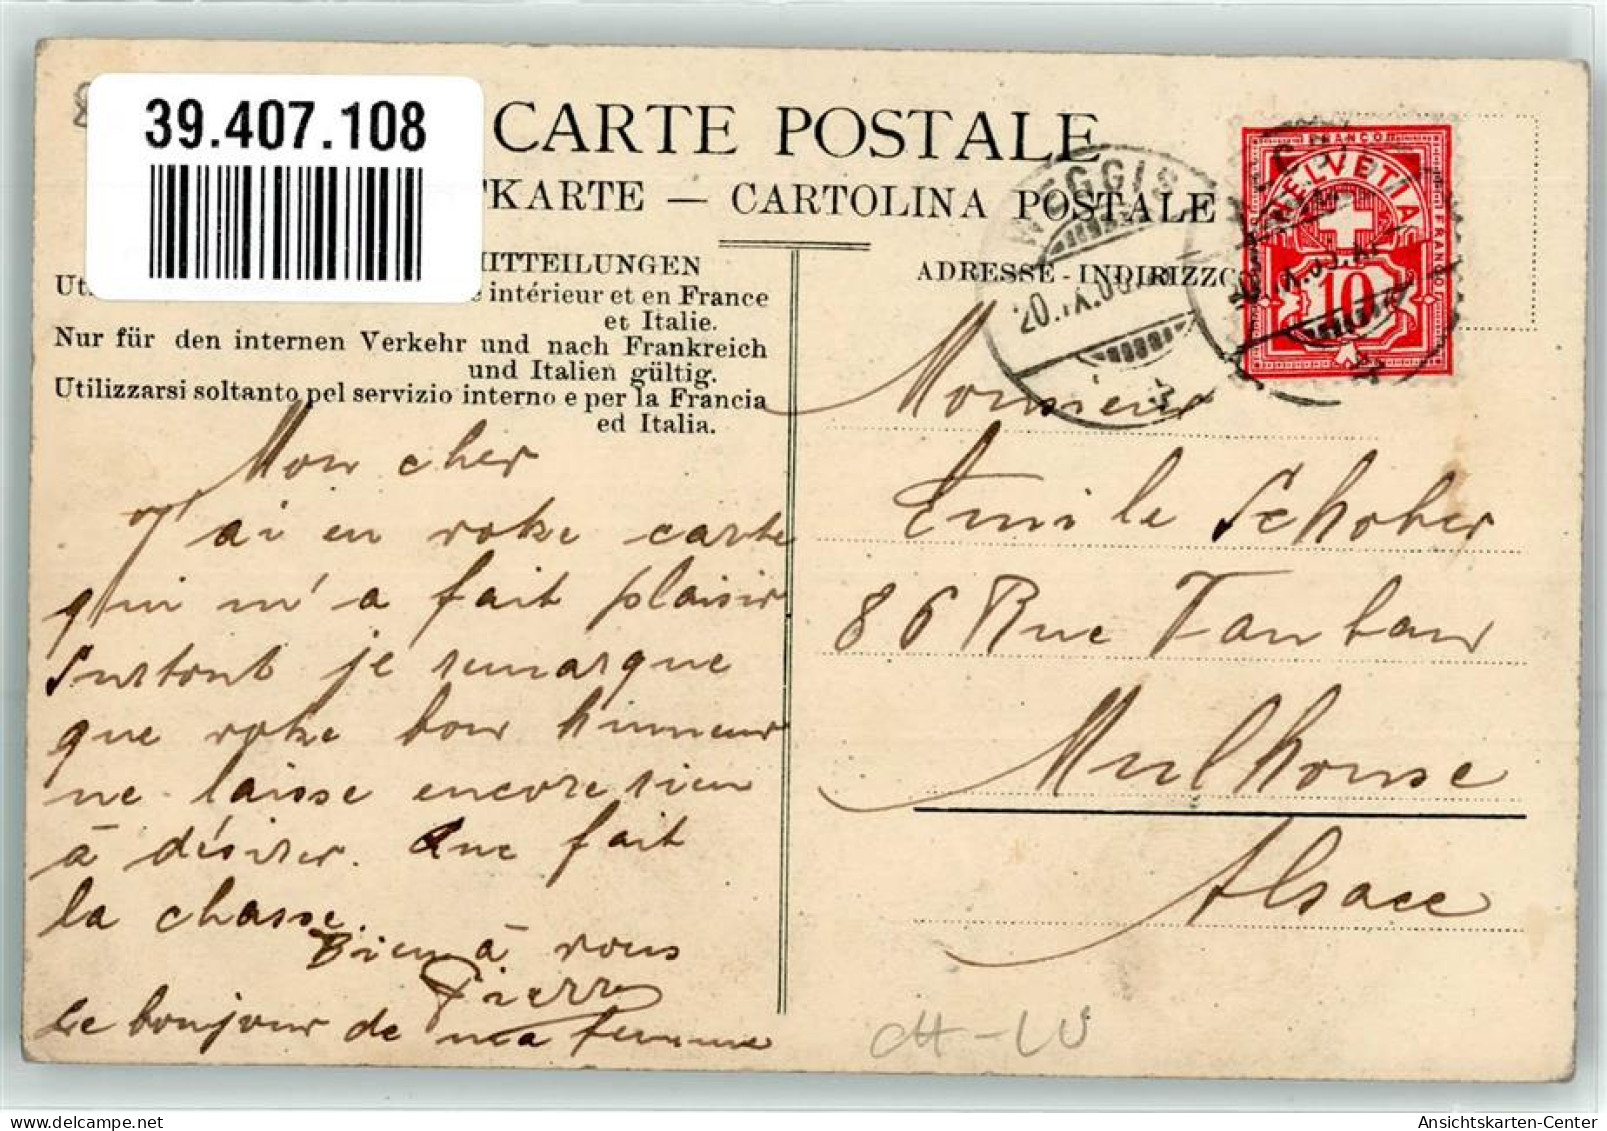 39.407.108
CARTE POSTALE
TKARTE — CARTOLINA POSTALE
MITTEILUNGEN
intérieur et en France
et Italie.
Nur für den internen Verkehr und nach Frankreich
und Italien gültig.
Utilizzarsi soltanto pel servizio interno e per la Francia
ed Italia.
Mon cher
J'ai eu votre carte
qui m'a fait plaisir
surtout je remarque
que votre bon humeur
ne laisse encore rien
à désirer. Que fait
la chasse.
Bien à vous
Pierre
Le bonjour de ma femme
ADRESSE - INDIRIZZO
WEGGIS
20.IX.09
FRANCO
HELVETIA
FRANCO
10
Monsieur
Emile Schober
86 Rue Faubour
Mulhouse
Alsace
CH-LU
Ansichtskarten-Center